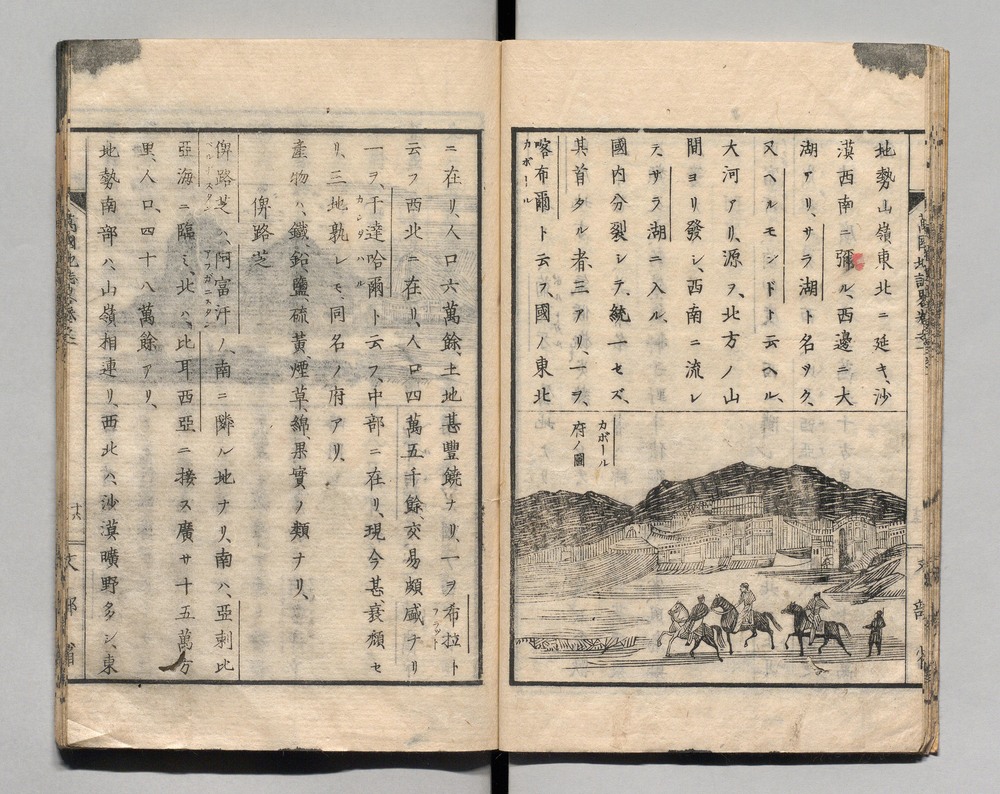 地勢山嶺東北ニ延キ、沙
漠西南ニ彌ル、西邊ニ大
湖アリ、サラ湖ト名ヅク、
又ヘルモンドト云ヘル、
大河アリ、源ヲ、北方ノ山
間ヨリ發シ、西南ニ流レ
テ、サラ湖ニ入ル、
國内分裂シテ、統一セズ、
其首タル者、三アリ、一ヲ、
喀布爾ト云フ、國ノ東北
カボール
カボール
府ノ圖
ニ在リ、人口六萬餘、土地甚豐饒ナリ、一ヲ布拉ト
云フ西北ニ在リ、人口四萬五千餘、交易頗盛ナリ
一ヲ、干達哈爾ト云フ、中部ニ在リ、現今甚衰頽セ
カンダハル
リ、三地孰レモ、同名ノ府アリ、
産物ハ、鐵鉛鹽硫黃、煙草、綿、果實ノ類ナリ、
俾路芝
俾路芝ハ、阿富汗ノ、南ニ隣ル地ナリ、南ハ、亞剌比
アフガニスタン
亞海ニ臨ミ、北ハ、比耳西亞ニ接ス廣サ十五萬方
里、人口、四十八萬餘アリ、
地勢南部ハ、山嶺相連リ、西北ハ、沙漠曠野多シ、東
十六
文部省